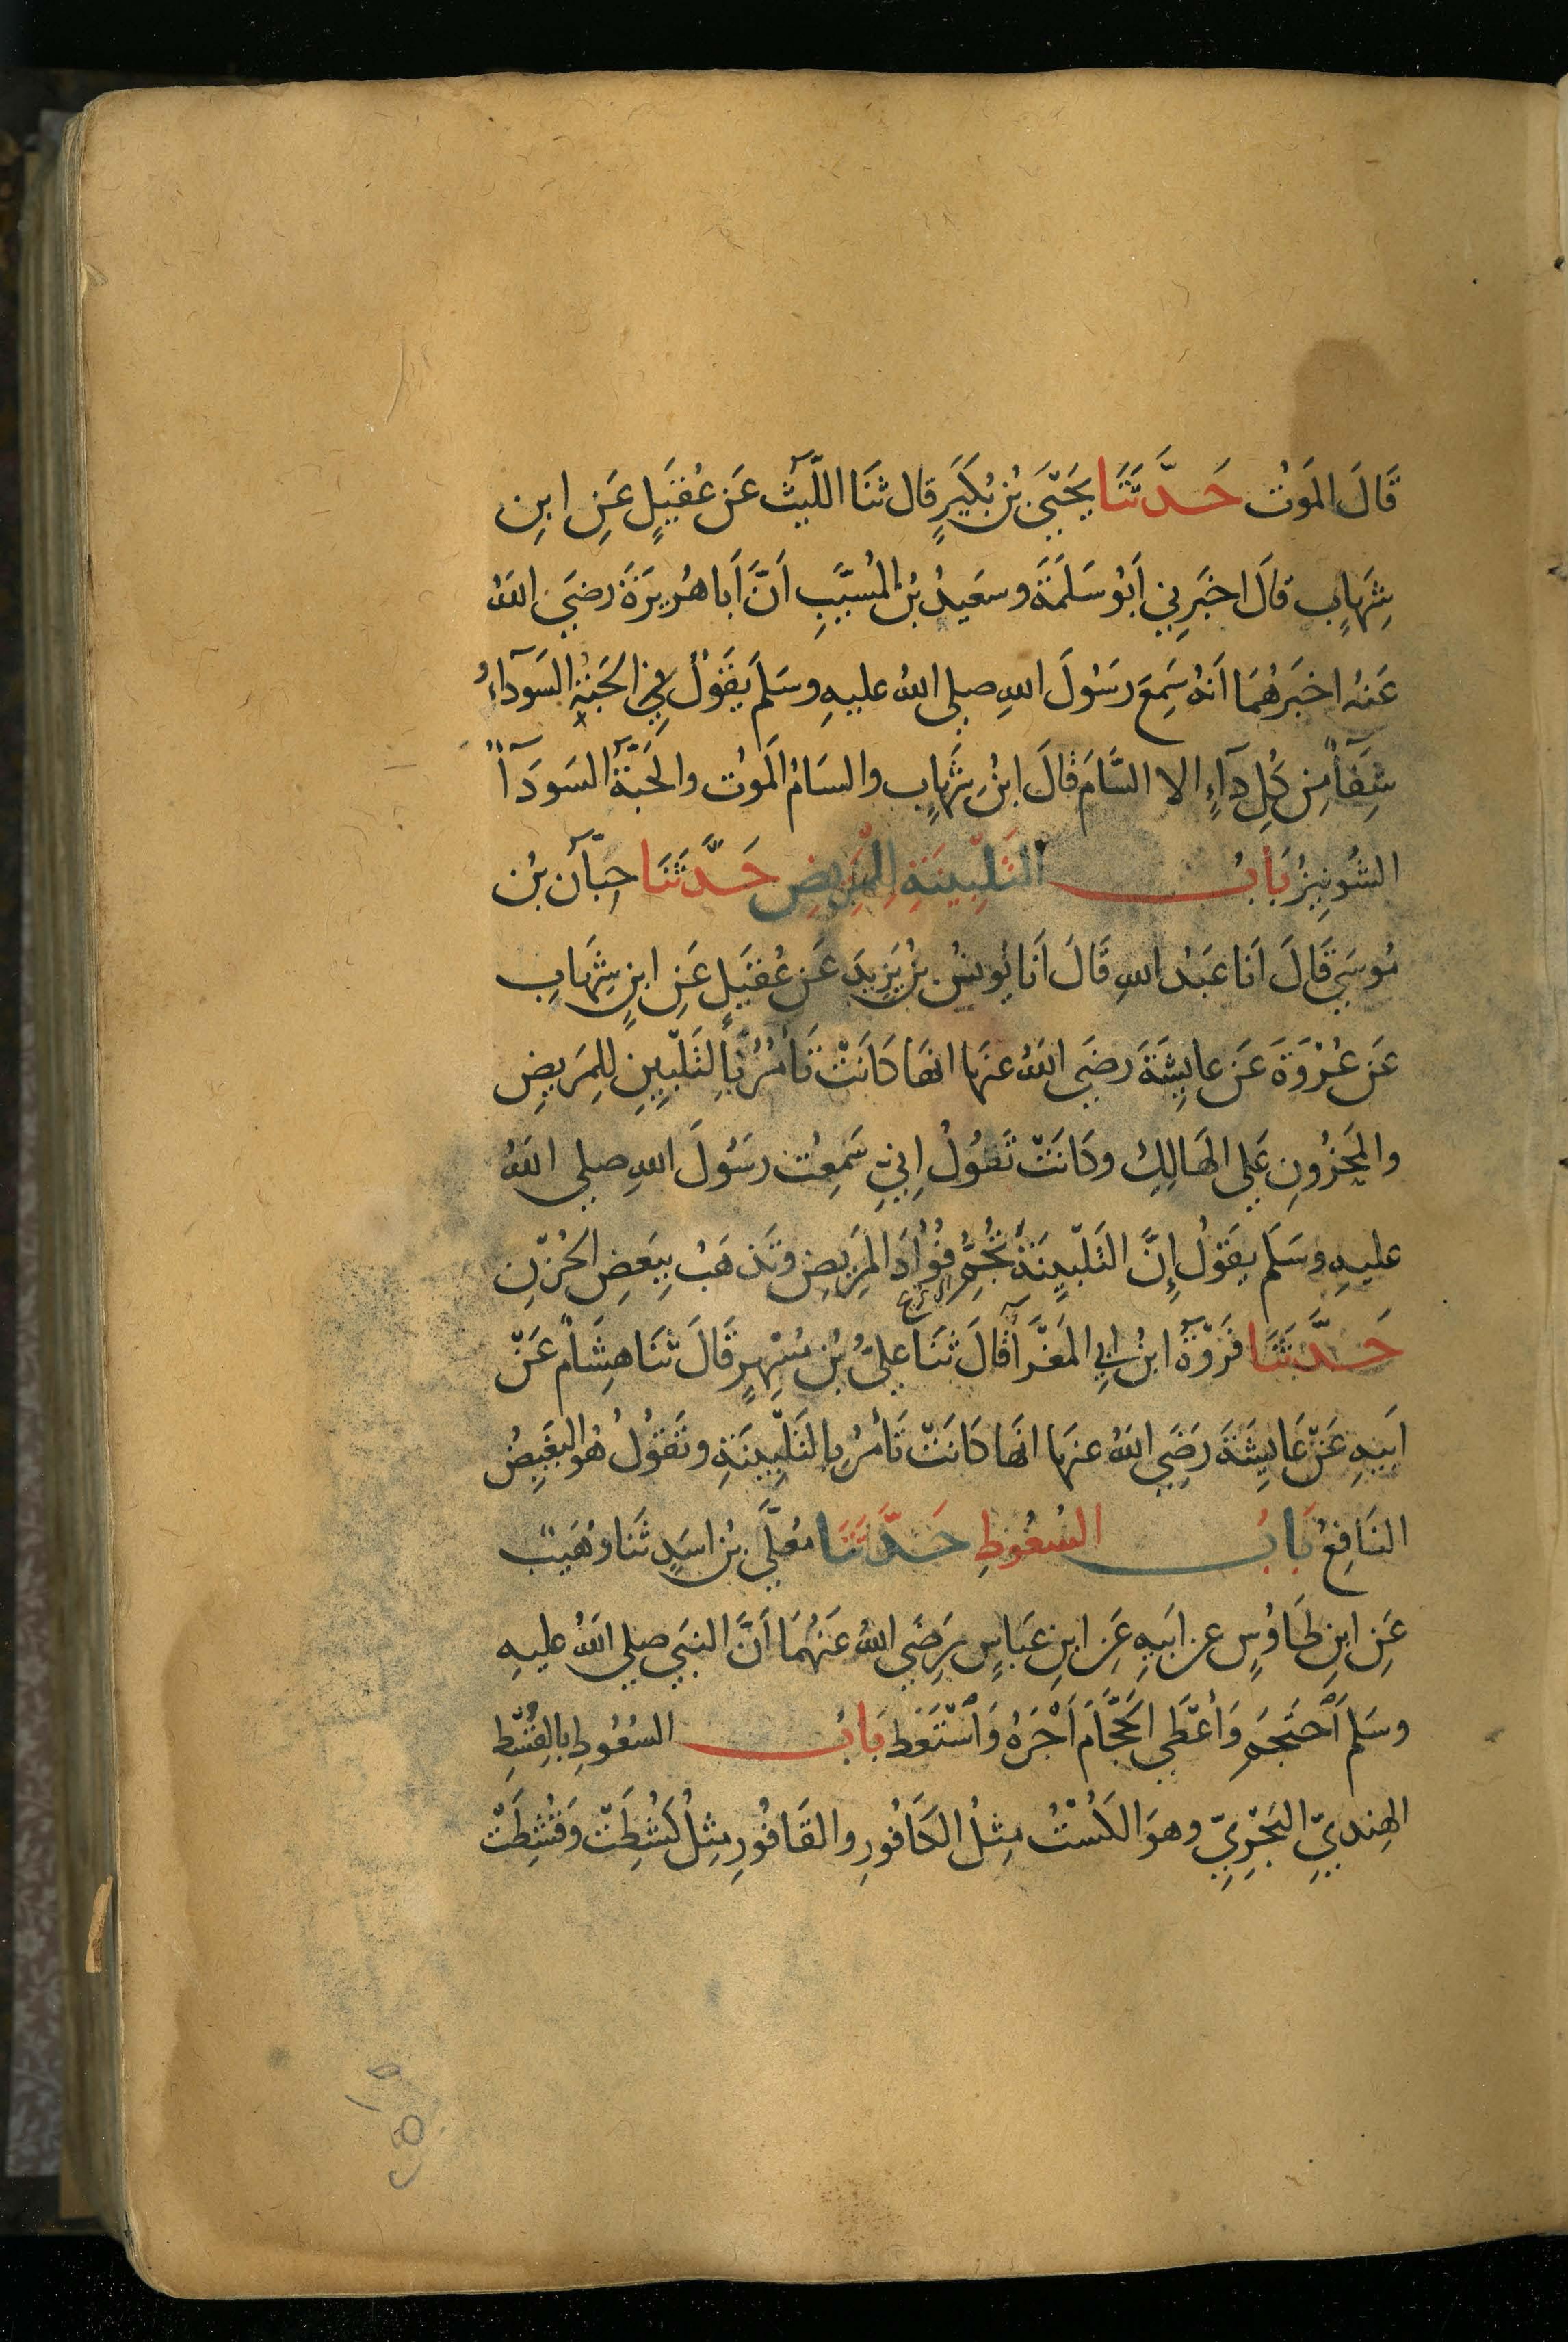 قَالَ المَوْتُ حَدَّثَنَا يَحْيَىَ بْنُ بُكَيْرٍ قال ثَنَا اللَّيْثُ عَنْ عُقَيْلٍ عَنِ ابنِ
شِهَابٍ قَالَ اخبَرنِي اَبُو سَلَمَةَ وسَعِيدُ بْنُ المُسَيَّبِ اَنَّ اَبا هُرَيرَةَ رضَيَ اللهُ
عَنهُ اخبَرَهُمَا اَنهُ سَمِعَ رَسُولَ اللهِ صلي اللهُ عليهِ وسَلَمَ يَقَولُ فِي الحَبَّةِ السَودَآءِ
شِفَآءٌ مِن كُلِ دَآءٍ الا السَّامَ قالَ ابْنُ شِهَابٍ والسَامُ المَوْتُ والحَبَّةُ السَودَآءُ
الشُونِيزُ بَابُ التَلبِينَةِ لِلْمَرِيضِ حَدَّثَنَا حِبَّان بْنُ
مُوسَيَ قَالَ اَنَا عَبدُ اللهِ قَالَ اَنَا يُونسُ بنُ يَزِيدَ عَن عُقَيلٍ عَنِ ابنِ شِهَابٍ
عَن عُرْوَةَ عَن عايِشَةَ رضَي اللهُ عنهَا انهَا كَانَتْ تَأمُرُ بِالتَلبِينِ للِمَرِيضِ
والمَحزُونِ عَلي الهَالِكِ وكَانَتْ تَقوُلُ اِنِي سَمِعْتُ رسَوُلَ اللهِ صلي اللهُ
عليهِ وسَلَم يقَوُلُ اِنَّ التَلبِينَةَ تُجُمُّ فُؤَادَ المَرِيضِ وتَذهَبُ بِبَعضِ الحُزْنِ
حَدَّثَنَا فَرْوَةُ ابنُ ابِي المَغْرَآ قَالَ ثنَا عَلِيُّ بْنُ مُسْهِرٍ قَالَ ثنَا هِشَامٌ عَنْ
اَبِيهِ عَنْ عَايِشَةَ رَضِيَ اللهُ عنهَا انهَا كَانَتْ تَأمُرُ بِالتَلبِينَةِ وتَقوُلُ هُوَ البَغِيضُ
النَافِعُ بَابُ السُعُوطِ حَدَّثَنَا مُعَلَّي بْنُ اسَدٍ ثَنَا وُهَيبٌ
عَنِ ابنِ طَاوُسٍ عن ابِيهِ عَنِ ابنِ عَبَاسٍ رَضِيَ اللهُ عَنهُمَا اَنَّ النبَي صلي اللهُ عليهِ
وسَلَم اَحتَجَمَ وَاَعْطَي الحَجَّامَ اَجْرَهُ وَاسْتَعَط بَابُ السُعُوطِ بالقُسْطِ
الهِنديِّ البَحْرِيِّ وهوَ الكُسْتُ مِثلُ الكَافُورِ والقَافُورِ مِثلُ كُشِطَتْ وَقُشِطَتْ